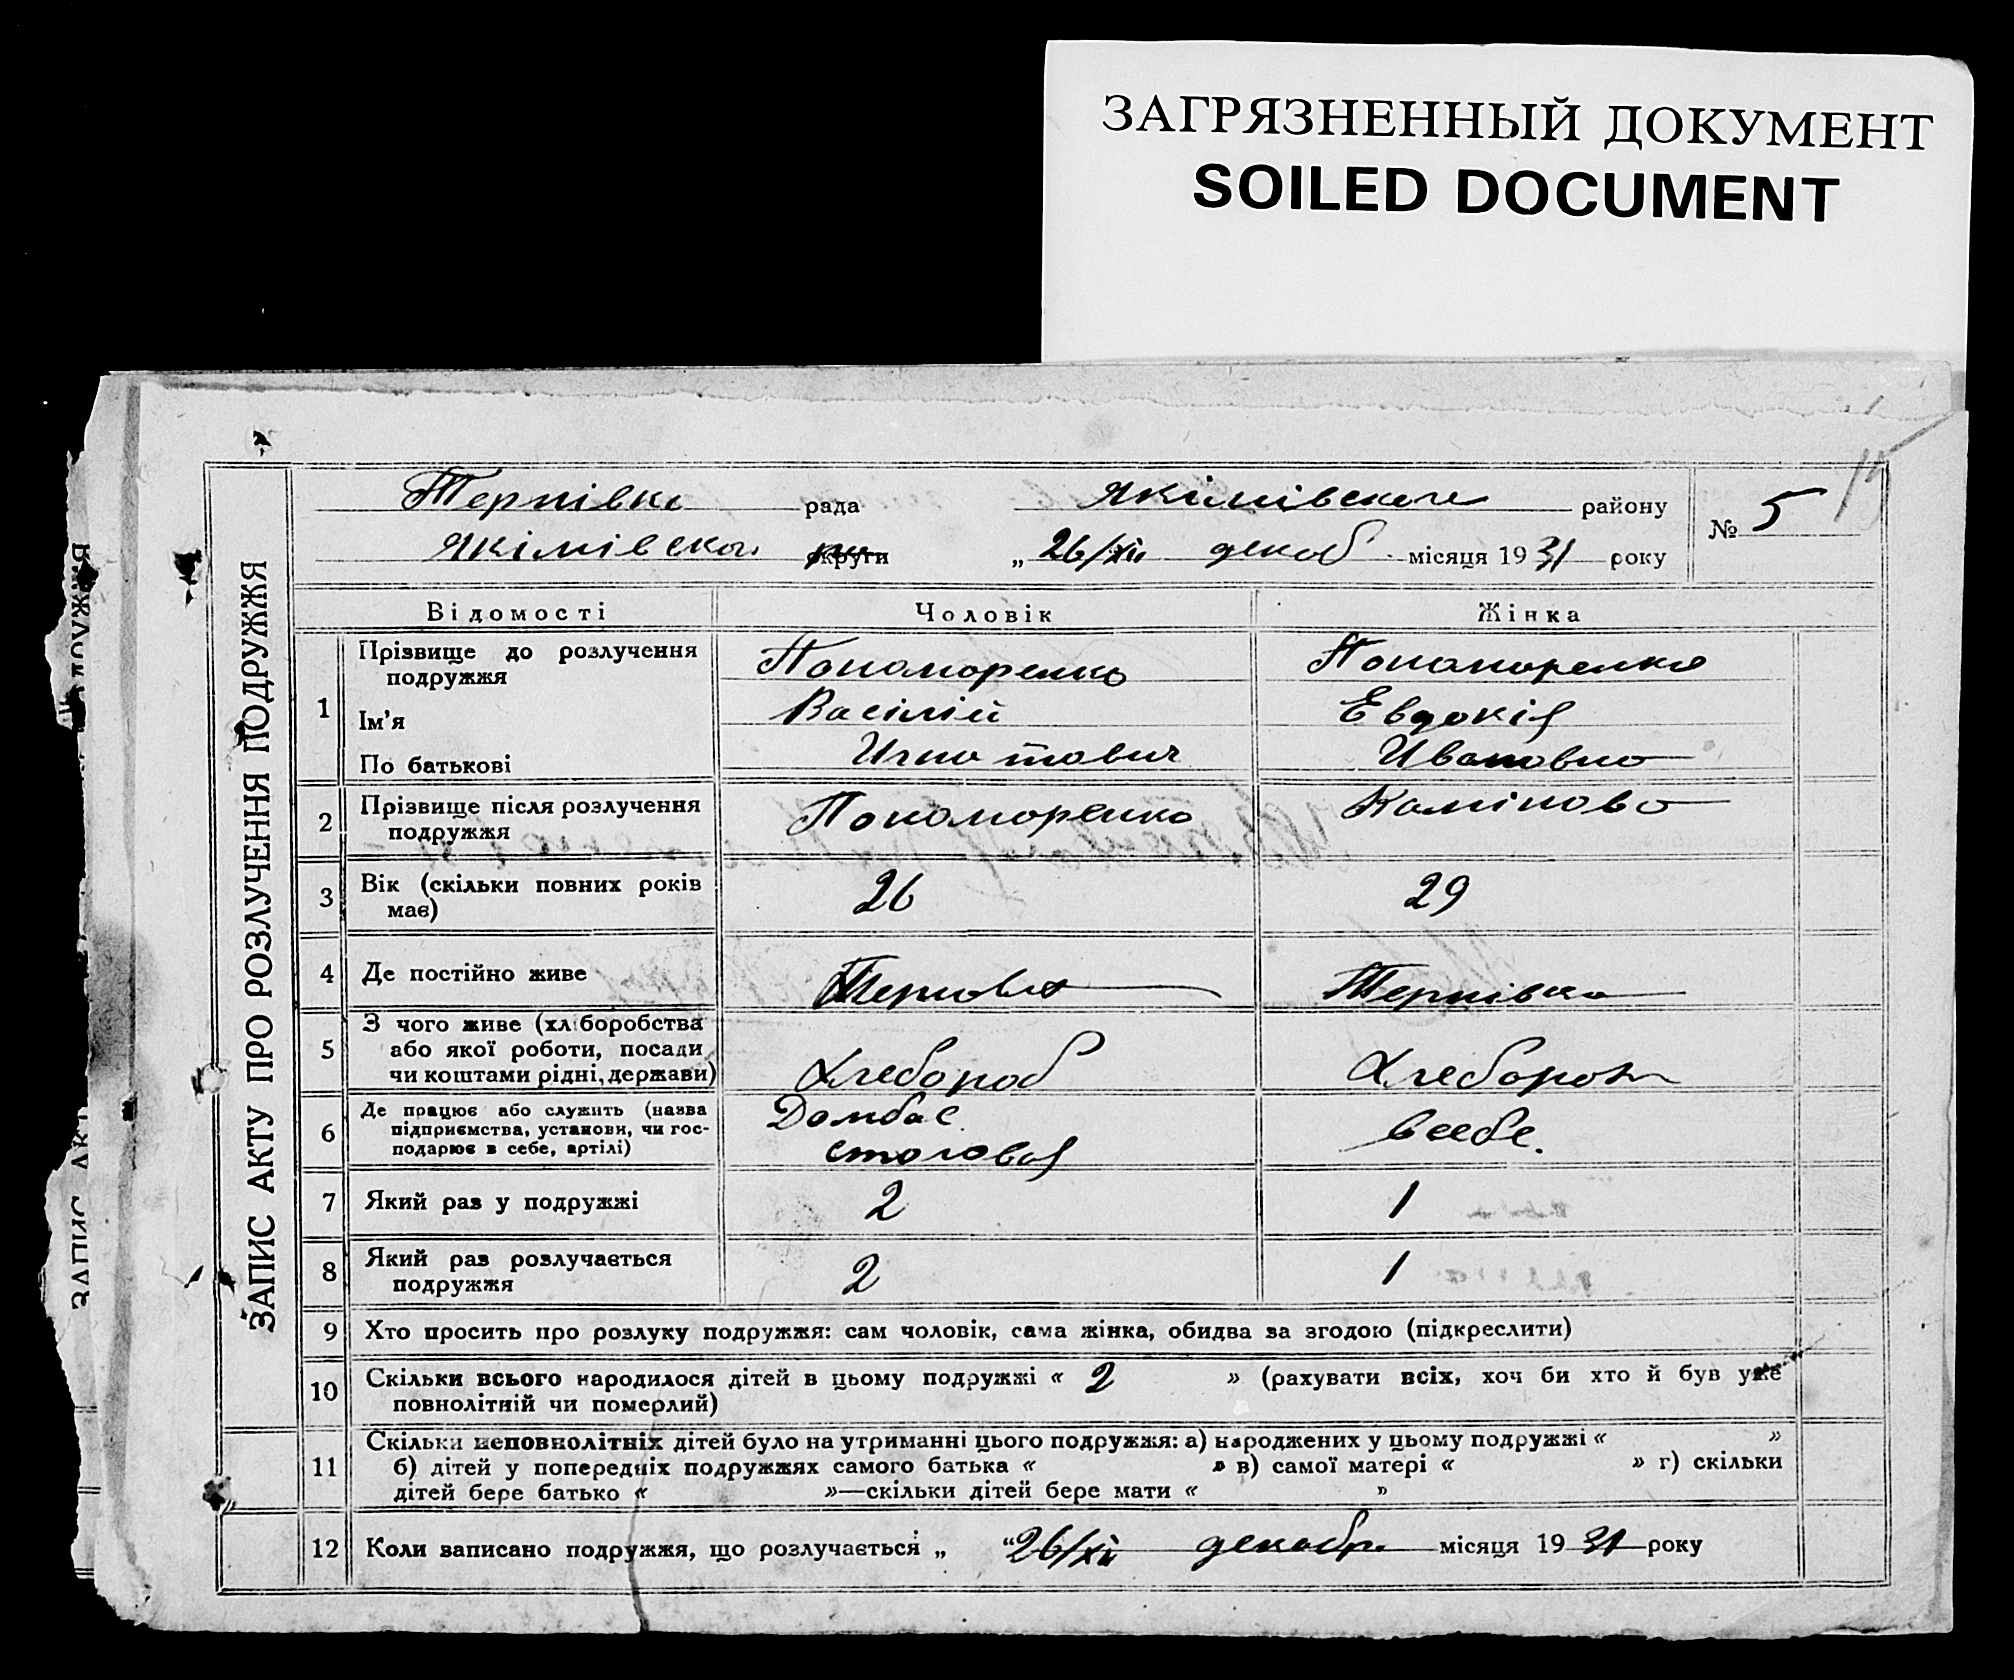 ЗАГРЯЗНЕННЫЙ ДОКУМЕНТ
SOILED DOCUMENT
ЗАПИС АКТУ ПРО РОЗЛУЧЕННЯ ПОДРУЖЖЯ
Тернівка рада Якімівского району № 5
Якімівска округи „ 26/XII декаб. місяця 1931 року
Відомості Чоловік Жінка
1 Прізвище до розлучення подружжя Пономоренко Пономоренко
Ім'я Васілій Евдокія
По батькові Игнатович Ивановна
2 Прізвище після розлучення подружжя Пономоренко Камінова
3 Вік (скільки повних років має) 26 29
4 Де постійно живе Тернівка
5 З чого живе (хліборобства або якої роботи, посади чи коштами рідні, держави) Хлебороб Хлебороб
6 Де працює або служить (назва підприємства, установи, чи господарює в себе, артілі) Домбас столовая всебе.
7 Який раз у подружжі 2 1
8 Який раз розлучається подружжя 2 1
9 Хто просить про розлуку подружжя: сам чоловік, сама жінка, обидва за згодою (підкреслити)
10 Скільки всього народилося дітей в цьому подружжі « 2 » (рахувати всіх, хоч би хто й був уже
повнолітній чи померлий)
11 Скільки неповнолітніх дітей було на утриманні цього подружжя: а) народжених у цьому подружжі « »
б) дітей у попередніх подружжях самого батька « » в) самої матері « » г) скільки
дітей бере батько « »—скільки дітей бере мати « »
12 Коли записано подружжя, що розлучається „ “ 26/XII декабр. місяця 1931 року